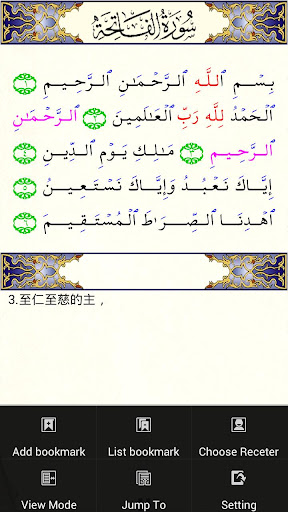 سُورَةُ الفَاتِحَةِ
بِسْمِ اللَّهِ الرَّحْمَٰنِ الرَّحِيمِ ١
الْحَمْدُ لِلَّهِ رَبِّ الْعَالَمِينَ ٢ الرَّحْمَٰنِ
الرَّحِيمِ ٣ مَالِكِ يَوْمِ الدِّينِ
٤ إِيَّاكَ نَعْبُدُ وَإِيَّاكَ نَسْتَعِينُ
٥ اهْدِنَا الصِّرَاطَ الْمُسْتَقِيمَ ٦
3.至仁至慈的主，
Add bookmark
List bookmark
Choose Receter
View Mode
Jump To
Setting